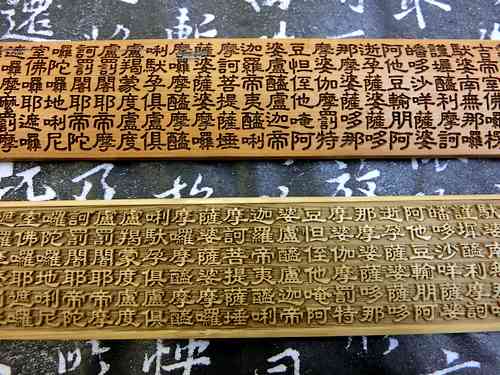 馱婆南無那囉
謹墀醯唎摩訶
皤哆沙咩薩婆
阿他豆輸朋阿
逝孕薩婆薩哆
那摩婆薩哆那
摩婆伽摩罰特
豆怛姪他唵阿
婆盧醯盧迦帝
迦羅帝夷醯唎
摩訶菩提薩埵
薩婆薩婆摩囉
摩囉摩醯摩醯
唎馱孕俱盧俱
盧羯蒙度盧度
盧罰闍耶帝摩
訶罰闍耶帝陀
囉陀囉地唎尼
室佛囉耶遮囉
謹墀醯唎摩訶
皤哆沙咩薩婆
阿他豆輸朋阿
逝孕薩婆薩哆
那摩婆薩哆那
摩婆伽摩罰特
豆怛姪他唵阿
婆盧醯盧迦帝
迦羅帝夷醯唎
摩訶菩提薩埵
薩婆薩婆摩囉
摩囉摩醯摩醯
唎馱孕俱盧俱
盧羯蒙度盧度
盧罰闍耶帝摩
訶罰闍耶帝陀
囉陀囉地唎尼
室佛囉耶遮囉